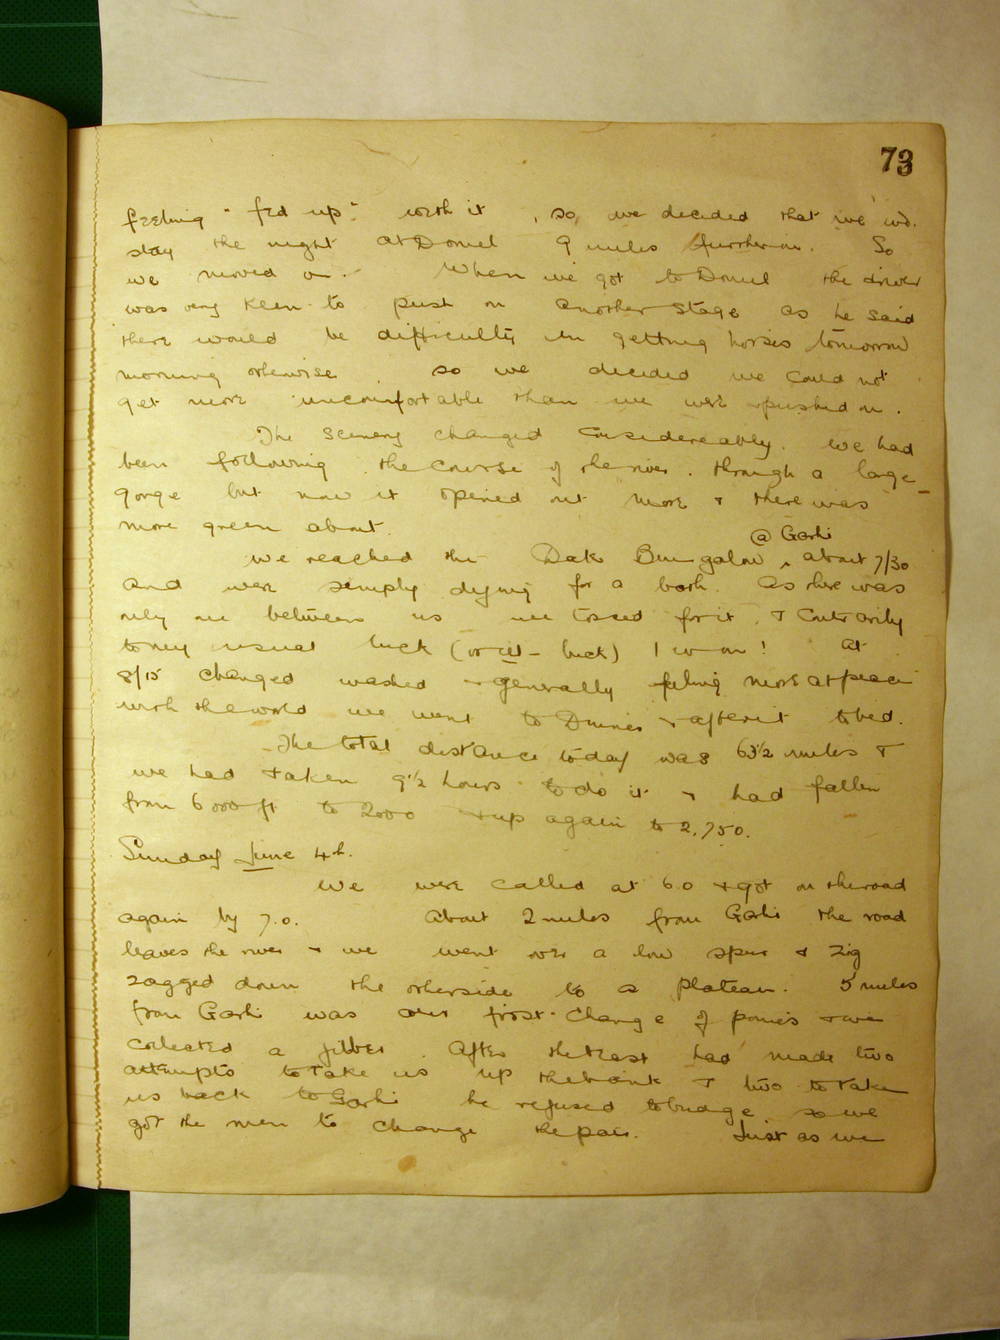 73
feeling "fed up" with it, so, we decided that we wd.
stay the night at Domel 9 miles further on. So
we moved on. When we got to Domel the driver
was very keen to push on another stage as he said
there would be difficulty in getting horses tomorrow
morning otherwise. so we decided we could not
get more uncomfortable than we were & pushed on.
The scenery changed considereably. We had
been following the course of the river. through a large
gorge but now it opened out more & there was
more green about.
@ Garhi
We reached the Dak Bungalow ^ about 7/30
and were simply dying for a bath. As there was
only one between us we tossed for it, & contrarily
to my usual luck (or ill-luck) I won! At
8/15 changed washed & generally feeling more at peace
with the world we went to Dinner & after it to bed.
The total distance today was 63½ miles &
we had taken 9½ hours to do it & had fallen
from 6000 ft to 2000 & up again to 2,750.
Sunday June 4th.
We were called at 6.0 & got on the road
again by 7.0. About 2 miles from Garhi the road
leaves the river & we went over a low spur & zig
zagged down the otherside to a plateau. 5 miles
from Garhi was our first change of ponies & we
collected a jibber. After the beast had made two
attempts to take us up the bank & two to take
us back to Garhi he refused to budge so we
got the men to change the pair. Just as we